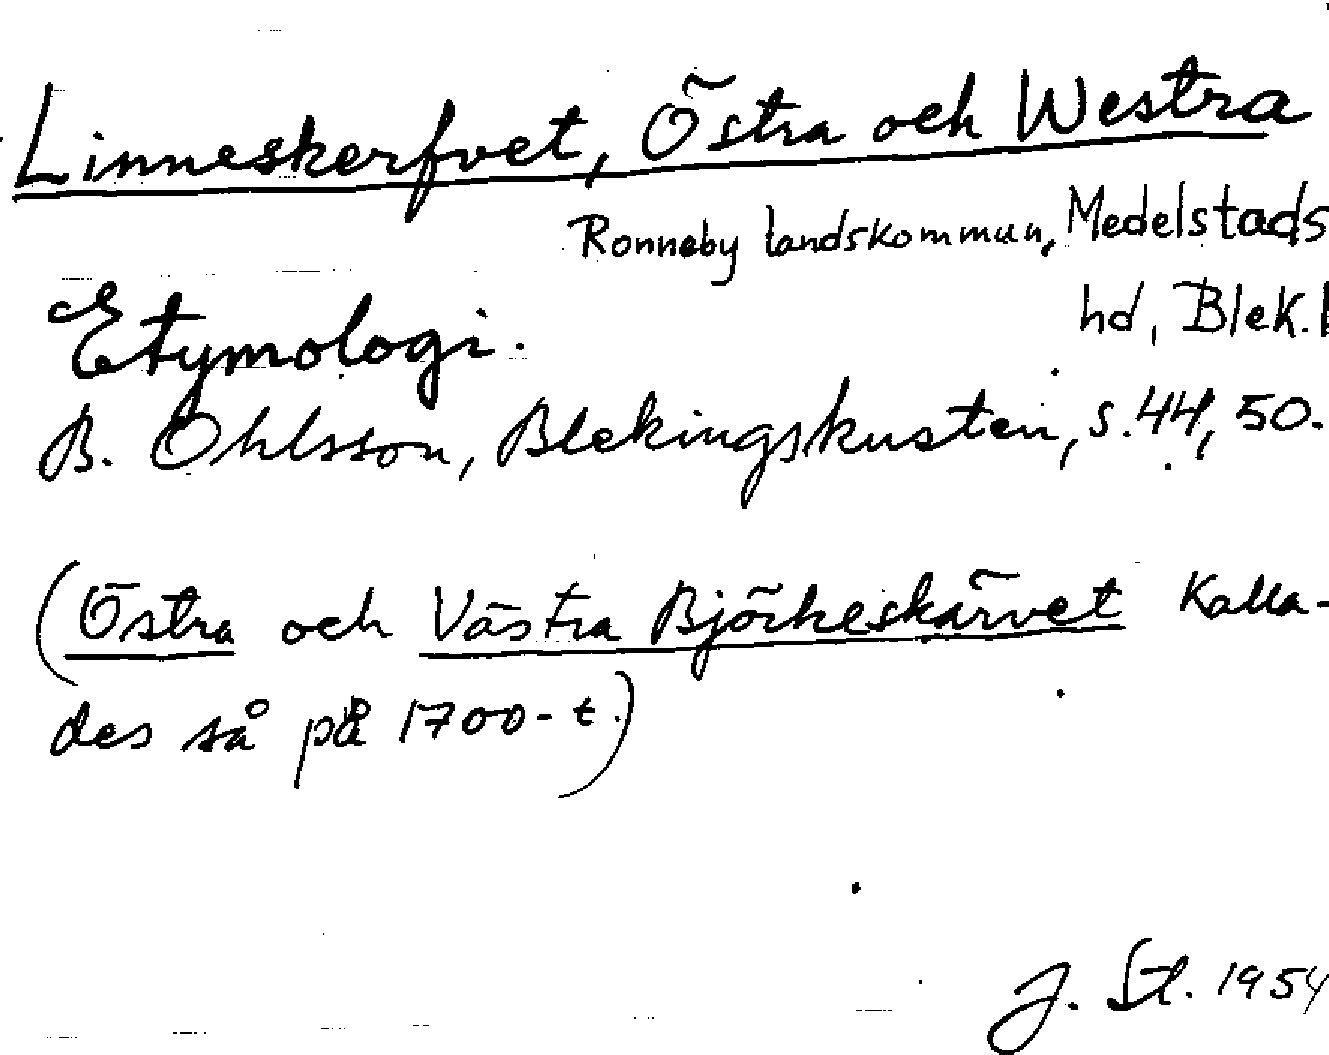 Linneskerfvet, Östra och Westra
Ronneby landskommun, Medelstads
hd, Blek. l
Etymologi.
B. Ohlsson, Blekingskusten, s. 44, 50.
(Östra och Västra Björkeskärvet kalla-
des så på 1700-t.)
J. St. 1954